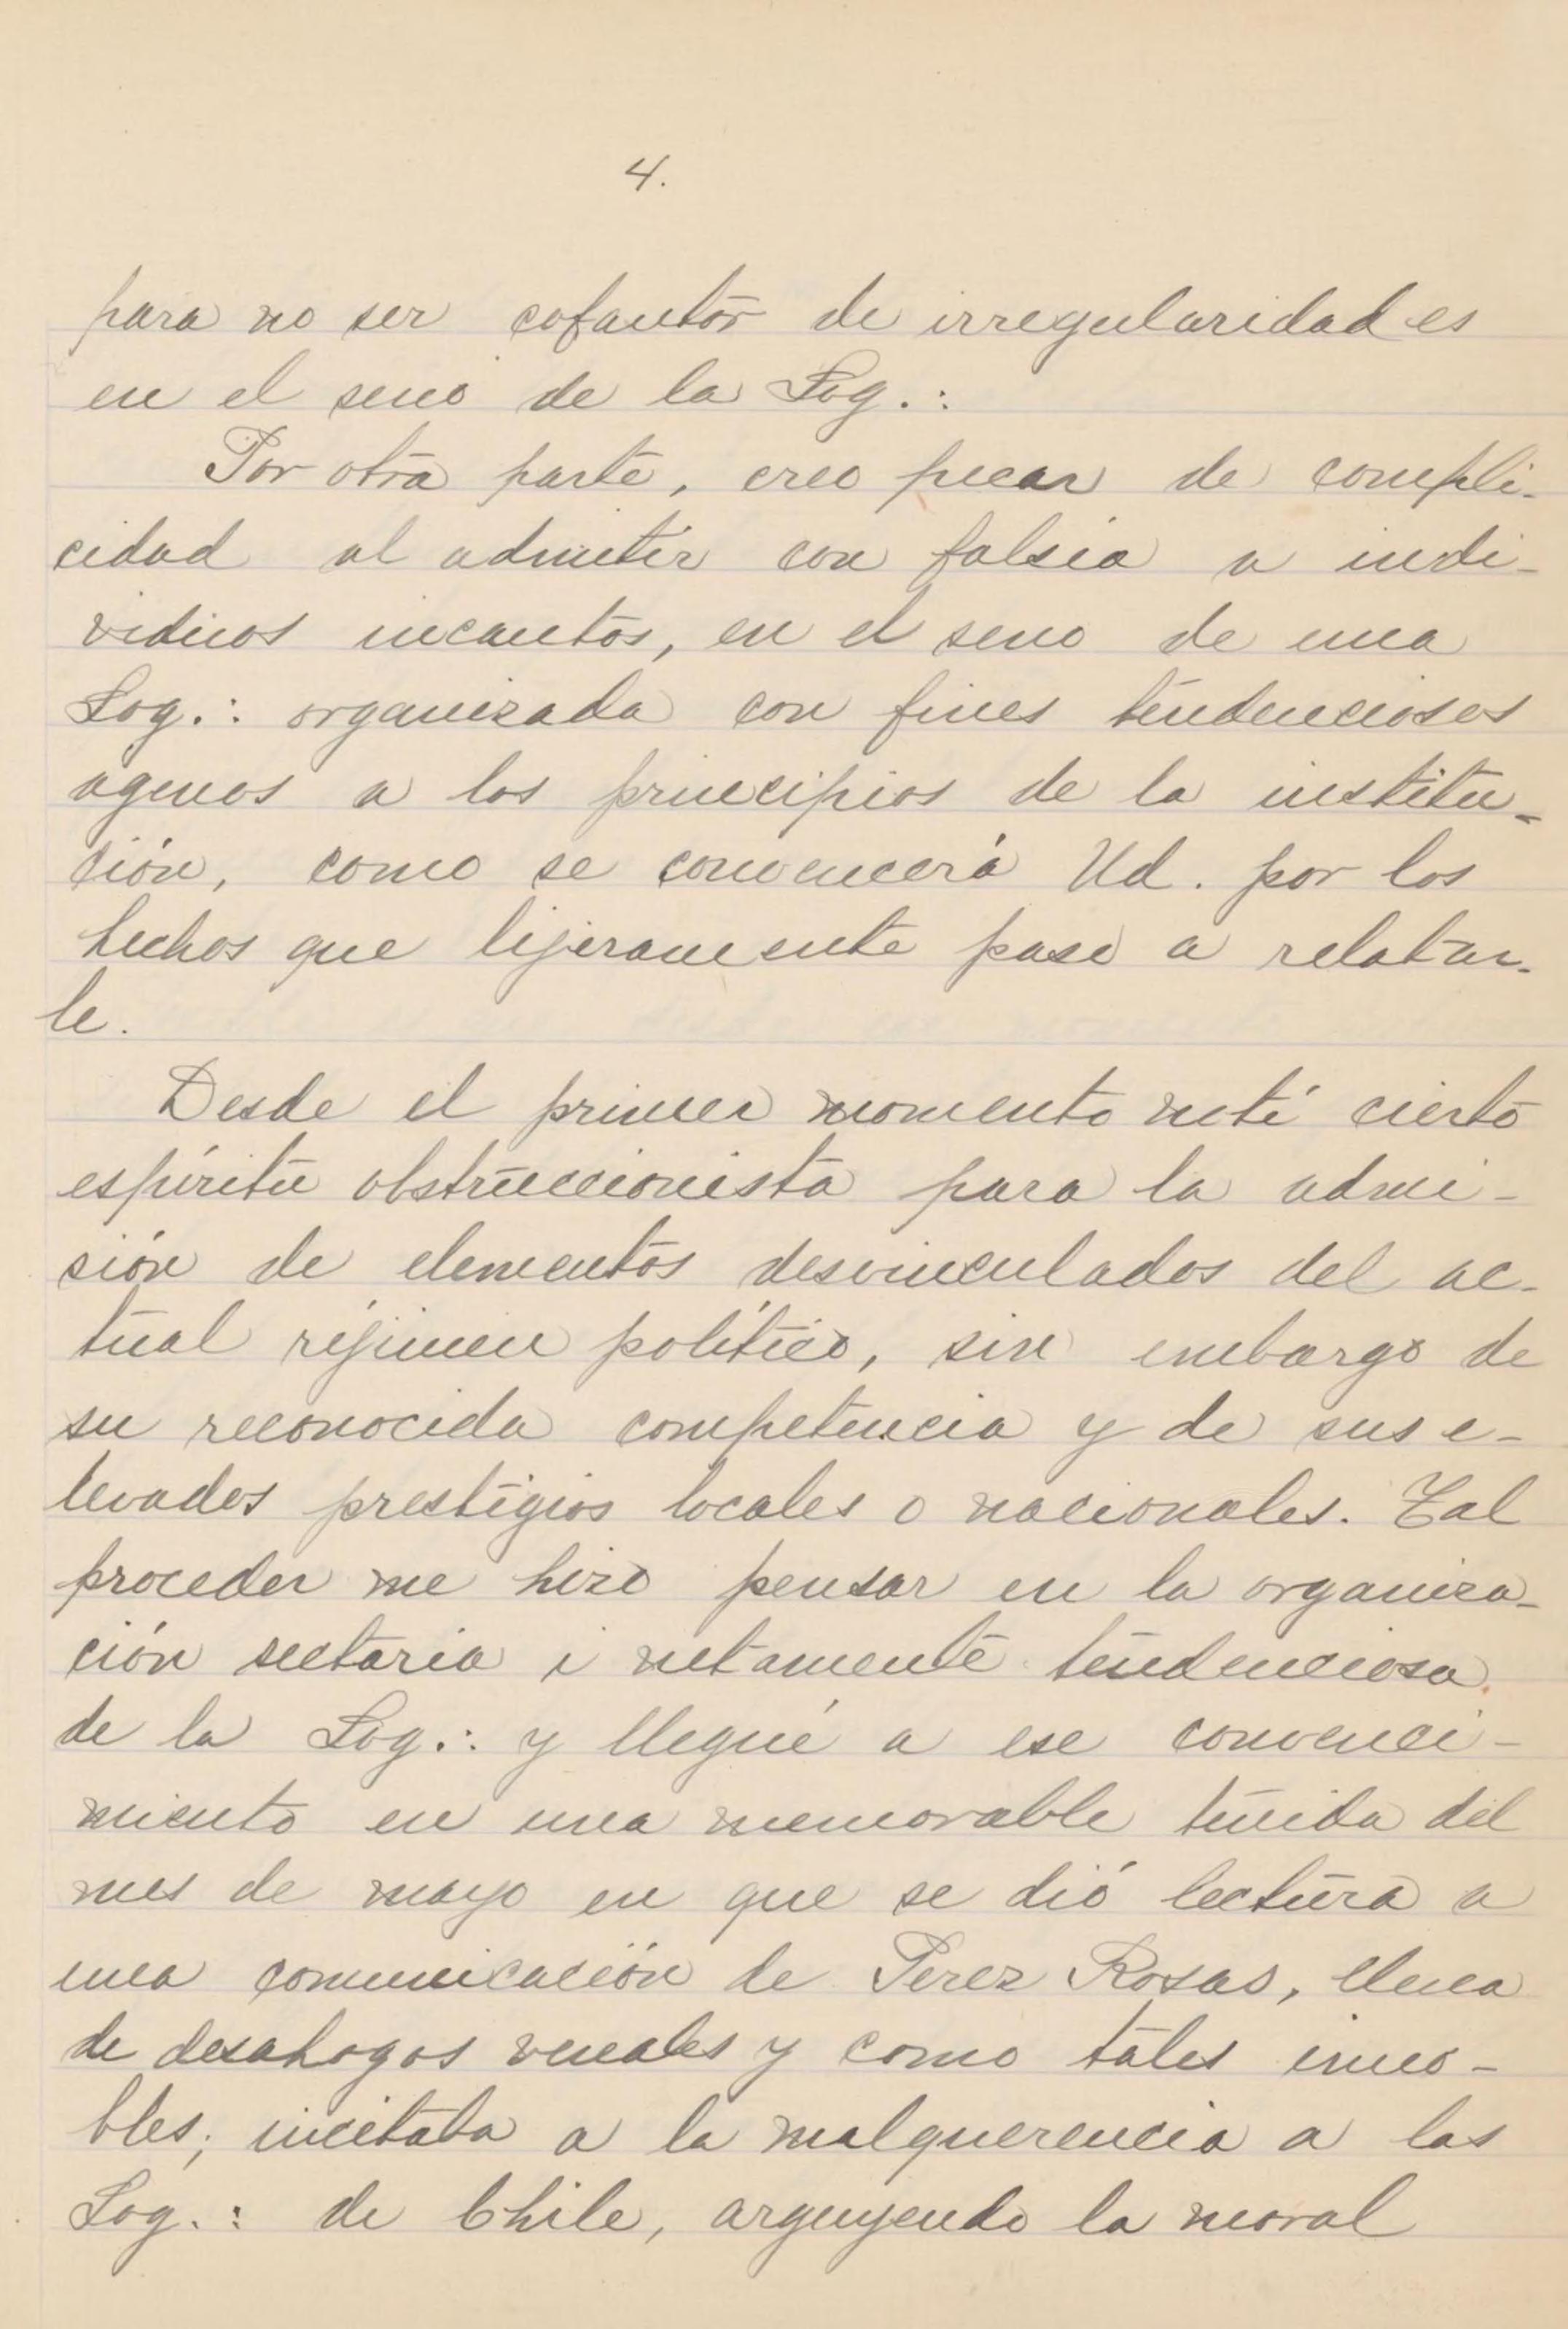 4.
para no ser cofautor de irregularidades
en el seno de la Log.:
Por otra parte, creo pecar de compli-
cidad al admitir con falsía a indi-
viduos incautos, en el seno de una
Log.: organizada con fines tendenciosos
agenos a los principios de la institu-
ción, como se convencerá Ud. por los
hechos que lijeramente paso a relatar-
le.
Desde el primer momento noté cierto
espíritu obstruccionista para la admi-
sión de elementos desvinculados del ac-
tual réjimen político, sin embargo de
su reconocida competencia y de sus e-
levados prestigios locales o nacionales. Tal
proceder me hizo pensar en la organiza-
ción sectaria i netamente tendenciosa
de la Log.: y llegué a ese convenci-
miento en una memorable tenida del
mes de mayo en que se dió lectura a
una comunicación de Perez Rosas, llena
de desahogos veneales y como tales inno-
bles; incitaba a la malquerencia a las
Log.: de Chile, arguyendo la moral